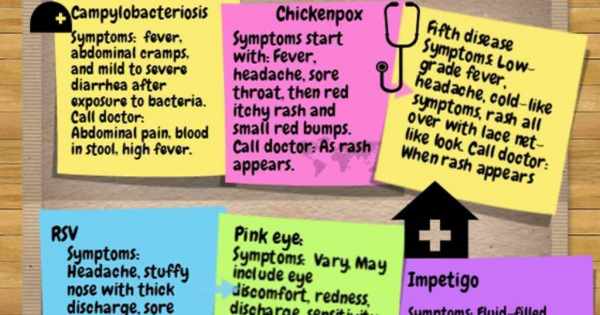 Campylobacteriosis
Symptoms: fever,
abdominal cramps,
and mild to severe
diarrhea after
exposure to bacteria.
Call doctor:
Abdominal pain, blood
in stool, high fever.
Chickenpox
Symptoms start
with: Fever,
headache, sore
throat, then red
itchy rash and
small red bumps.
Call doctor: As rash
appears.
Fifth disease
Symptoms: Low-
grade fever,
headache, cold-like
symptoms, rash all
over with lace net-
like look. Call doctor:
When rash appears
RSV
Symptoms:
Headache, stuffy
nose with thick
discharge, sore
Pink eye:
Symptoms: Vary. May
include eye
discomfort, redness,
discharge, sensitivity
Impetigo
Symptoms: Fluid-filled